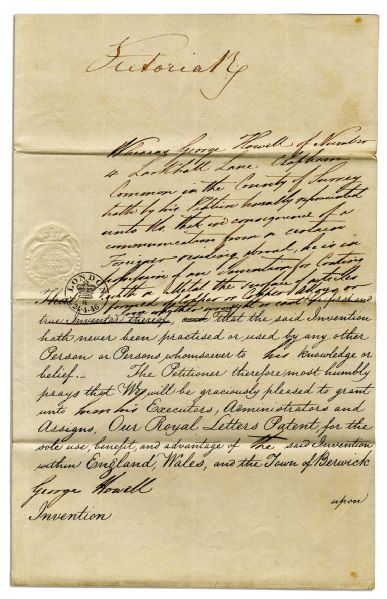 Victoria R
Whereas George Howell of Number
4 Larkhall Lane Clapham
Common in the County of Surrey
hath by his Petition humbly represented
unto Us that in consequence of a
communication from a certain
Foreigner residing abroad, he is in
possession of an Invention for Coating
with a Metal the Surface of articles
formed of Copper or Copper Alloys or
LONDON
That he is the first and
true Inventor thereof, that the said Invention
hath never been practised or used by any other
Person or Persons whomsoever to his knowledge or
belief. The Petitioner therefore most humbly
prays that We will be graciously pleased to grant
unto him his Executors, Administrators and
Assigns, Our Royal Letters Patent, for the
sole use, benefit, and advantage of the said Invention
within England, Wales, and the Town of Berwick
George Howell
upon
Invention